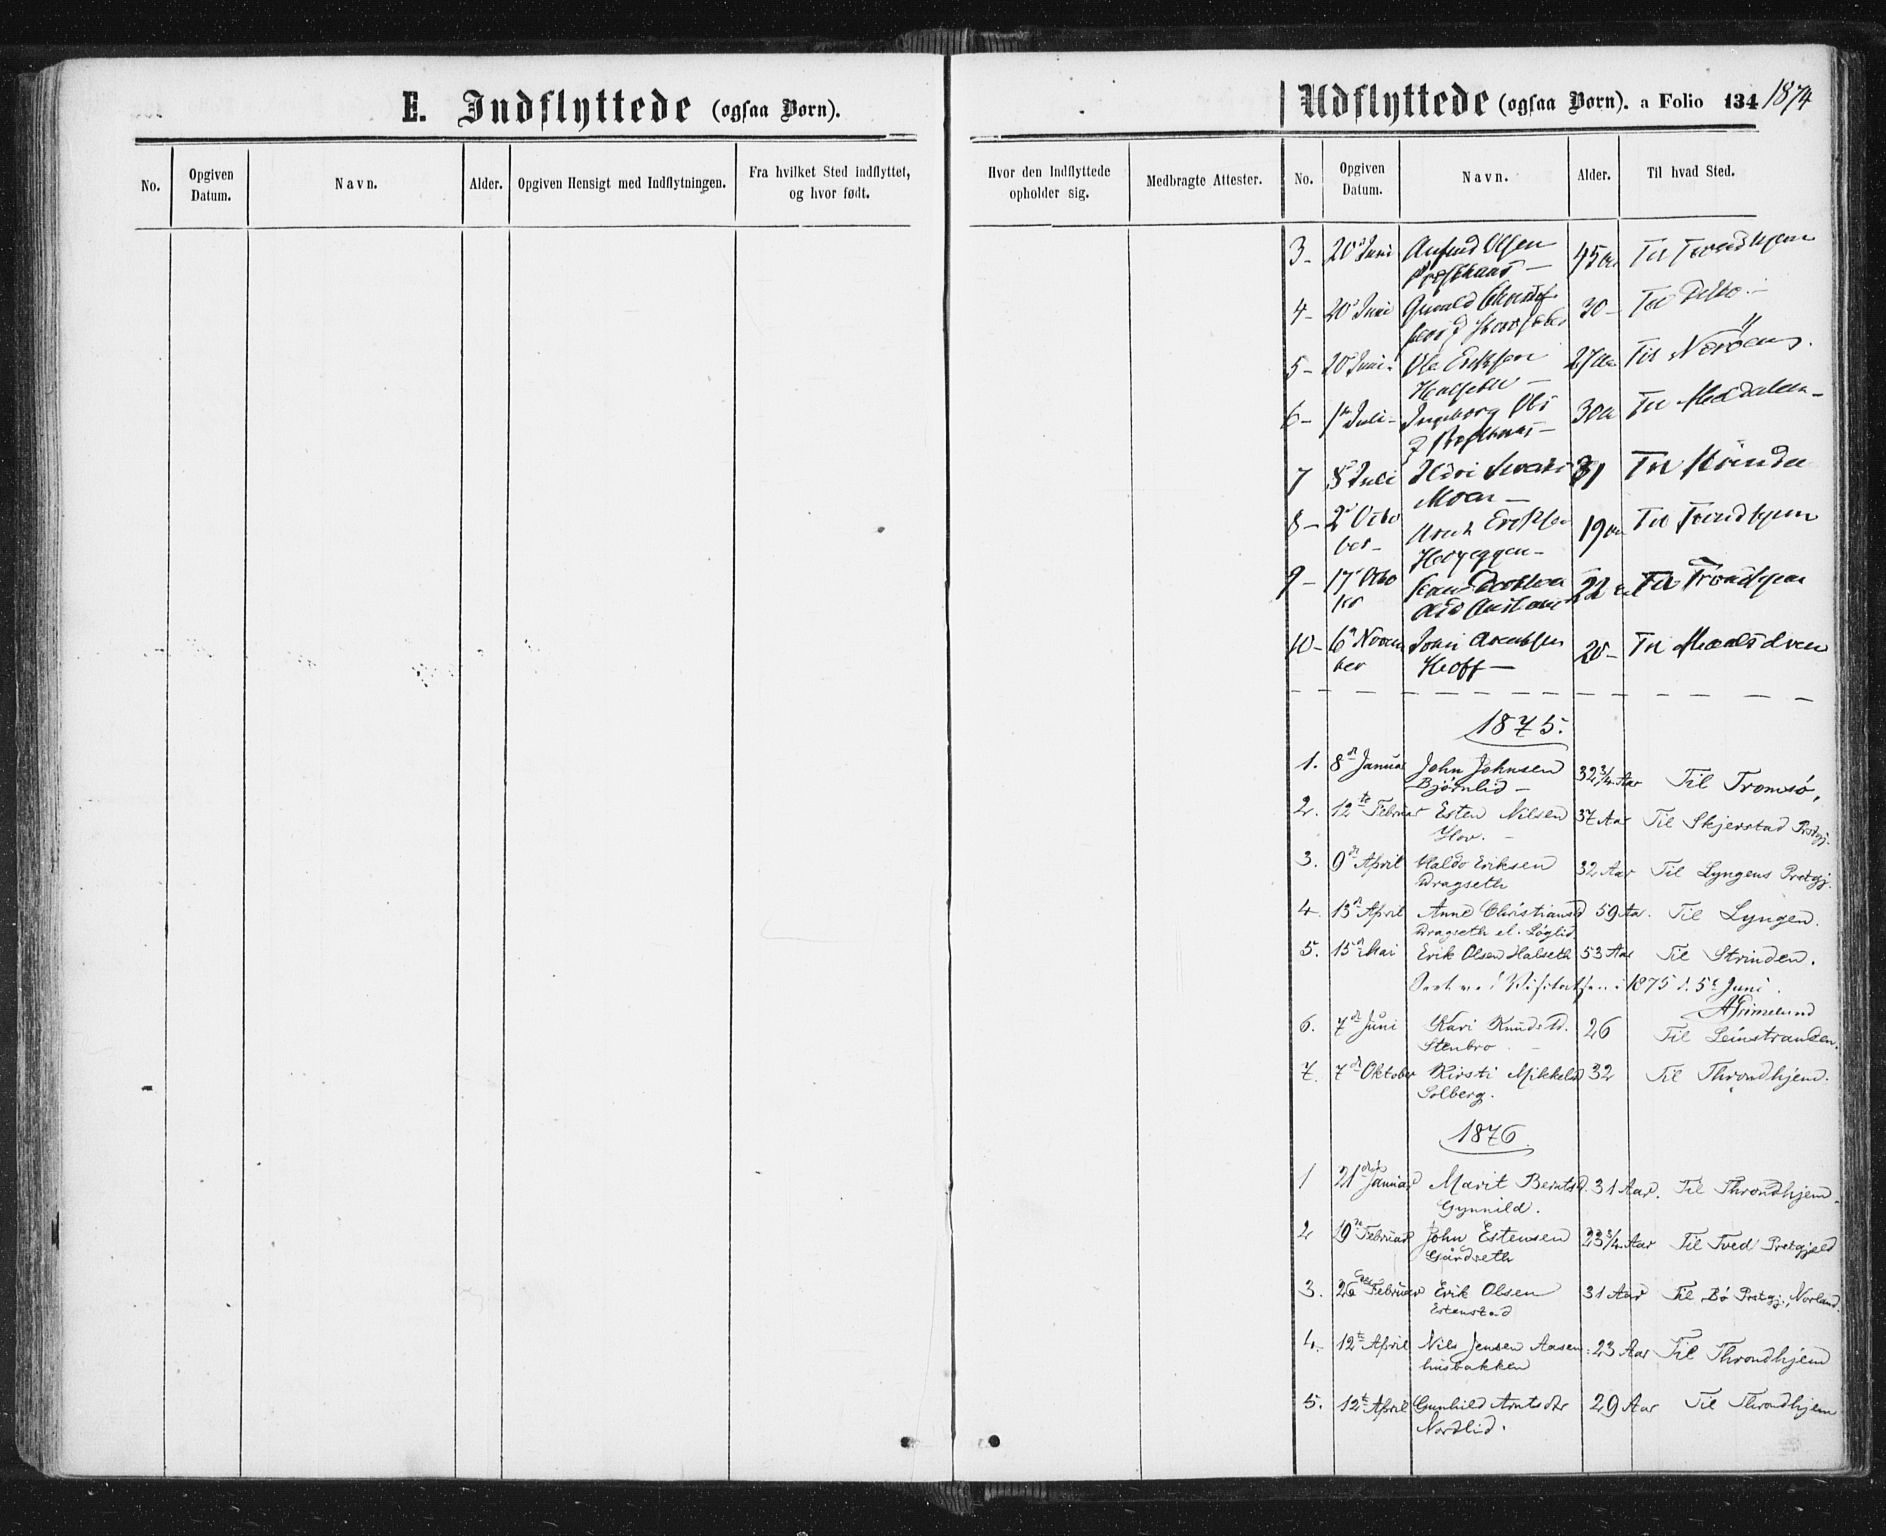 E. Indflyttede (ogsaa Børn).
No.
Opgiven Datum.
Navn.
Alder.
Opgiven Hensigt med Indflytningen.
Fra hvilket Sted indflyttet, og hvor født.
Hvor den Indflyttede opholder sig.
Medbragte Attester.
Udflyttede (ogsaa Børn). a Folio 134 1874
No.
Opgiven Datum.
Navn.
Alder.
Til hvad Sted.
3- 20 Juni Olsen 45 Til Trondhjem
4- 20 Juni 30- Til Ditto -
5- 20 Juni Ole Eriksen 27 Til
Halseth -
6- 1 Juli - Ingeborg Ols 30 Til
7 8 Juli 31 Til Strinda
Moen -
8- 2 Octo Eriksen 19 Til Trondhjem
ber-
9- 17 Octo 22 Til Trondhjem
10- 6 Novem John Arentsen 20- Til Maalselven
ber Hoff -
1875.
1. 8de Januar John Johnsen 32 3/4 Aar Til Tromsø,
Bjørnlid -
2. 12te Februar Esten Nilsen 37 Aar Til Skjerstad Prstgj.
Hov. -
3. 9de April Haldo Eriksen 32 Aar Til Lyngens Prstgj.
Dragseth
4. 13de April Anne Christiansd 59 Aar. Til Lyngen.
Dragseth el. Løglid
5. 15de Mai Erik Olsen Halseth 53 Aar Til Strinden.
Visitatsen i 1875 d. 5te Juni.
AGrimelund
6. 7de Juni Kari Knudsd. 26 Til Leinstranden.
Stenbro -
7. 7de Oktober Kirsti Mikkelsd 32 Til Throndhjem.
Solberg.
1876.
1 21de Januar Marit Berntsd. 31 Aar. Til Throndhjem.
Gynnild.
2 19de Februar John Estensen 23 3/4 Aar Til Tved Prstgjeld
Gårdseth
3. 26 Februar Erik Olsen 31 Aar Til Bø Prstgj., Norland.
Estenstad
4. 12te April Nils Jensen Aasen- 23 Aar Til Throndhjem
husbakken
5. 12te April Gunhild Arntsdtr 29 Aar Til Throndhjem
Nordlid.